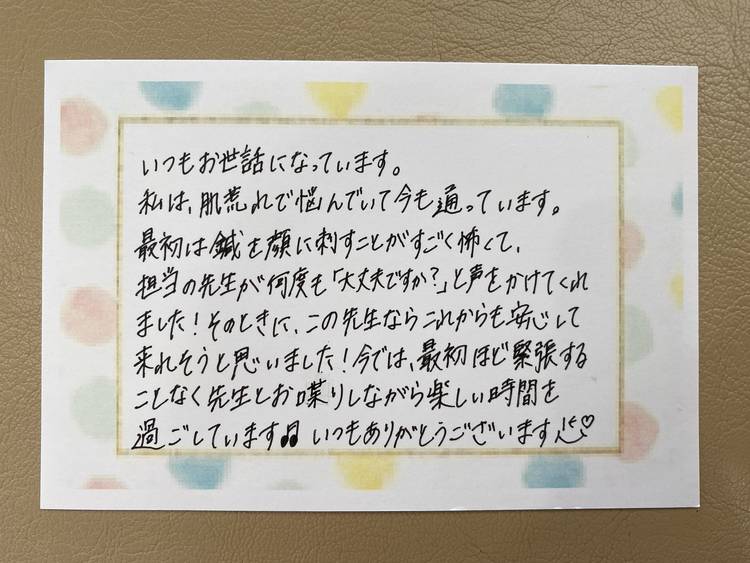 いつもお世話になっています。
私は、肌荒れで悩んでいて今も通っています。
最初は鍼を顔に刺すことがすごく怖くて、
担当の先生が何度も「大丈夫ですか?」と声をかけてくれ
ました!そのときに、この先生ならこれからも安心して
来れそうと思いました!今では、最初ほど緊張する
ことなく先生とお喋りしながら楽しい時間を
過ごしています♫ いつもありがとうございます♡